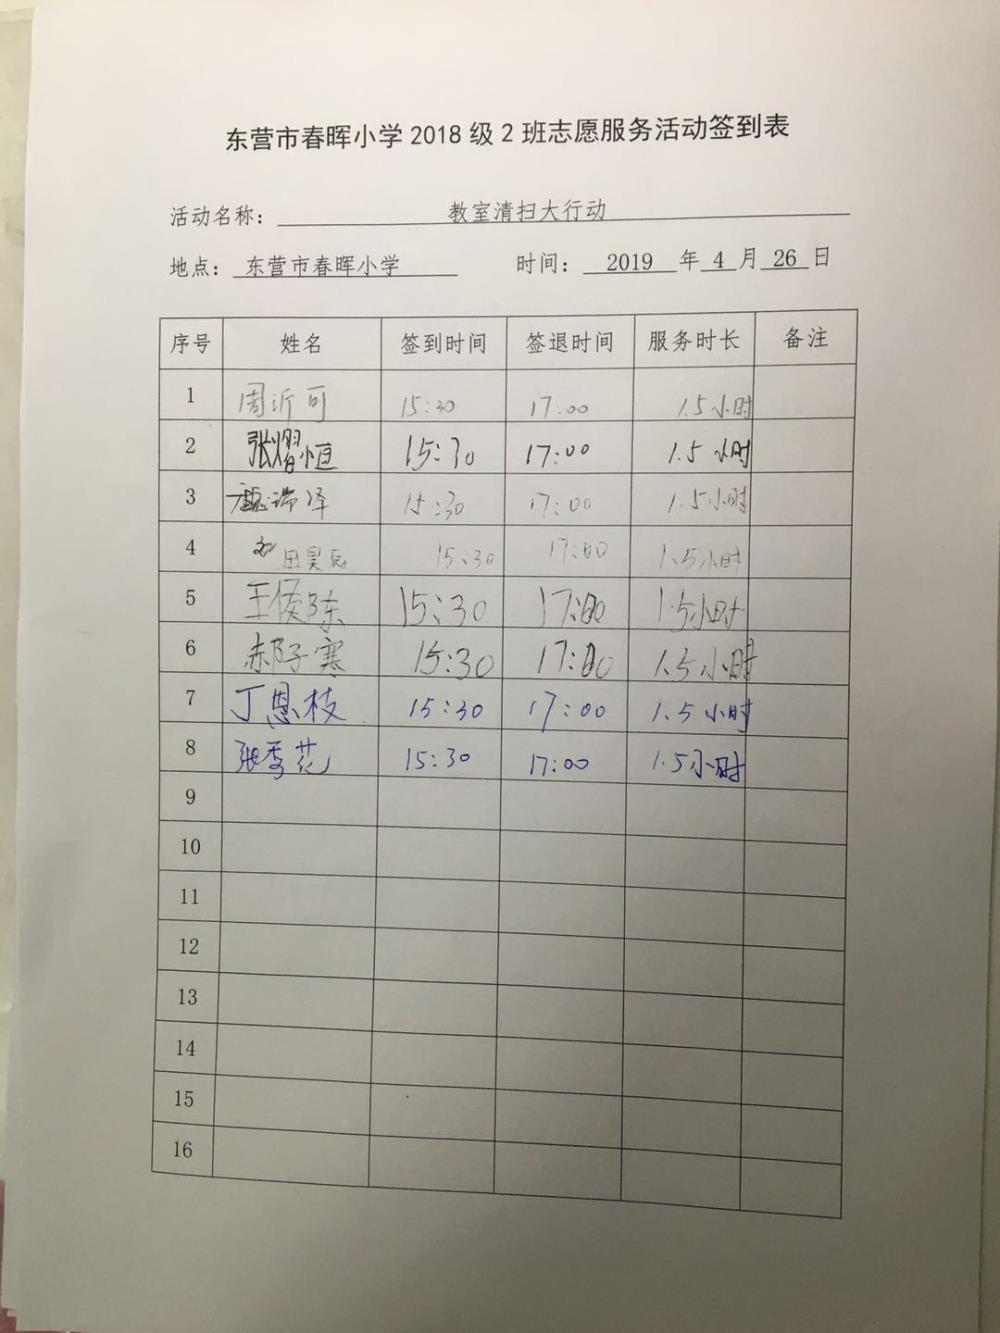 东营市春晖小学2018级2班志愿服务活动签到表
活动名称： 教室清扫大行动
地点： 东营市春晖小学 时间： 2019 年 4 月 26 日
序号 姓名 签到时间 签退时间 服务时长 备注
1 周沂可 15:30 17:00 1.5小时
2 张熠恒 15:30 17:00 1.5小时
3 魏瑞泽 15:30 17:00 1.5小时
4 田昊 15:30 17:00 1.5小时
5 王俊陈 15:30 17:00 1.5小时
6 郝子寒 15:30 17:00 1.5小时
7 丁恩枝 15:30 17:00 1.5小时
8 张秀花 15:30 17:00 1.5小时
9
10
11
12
13
14
15
16